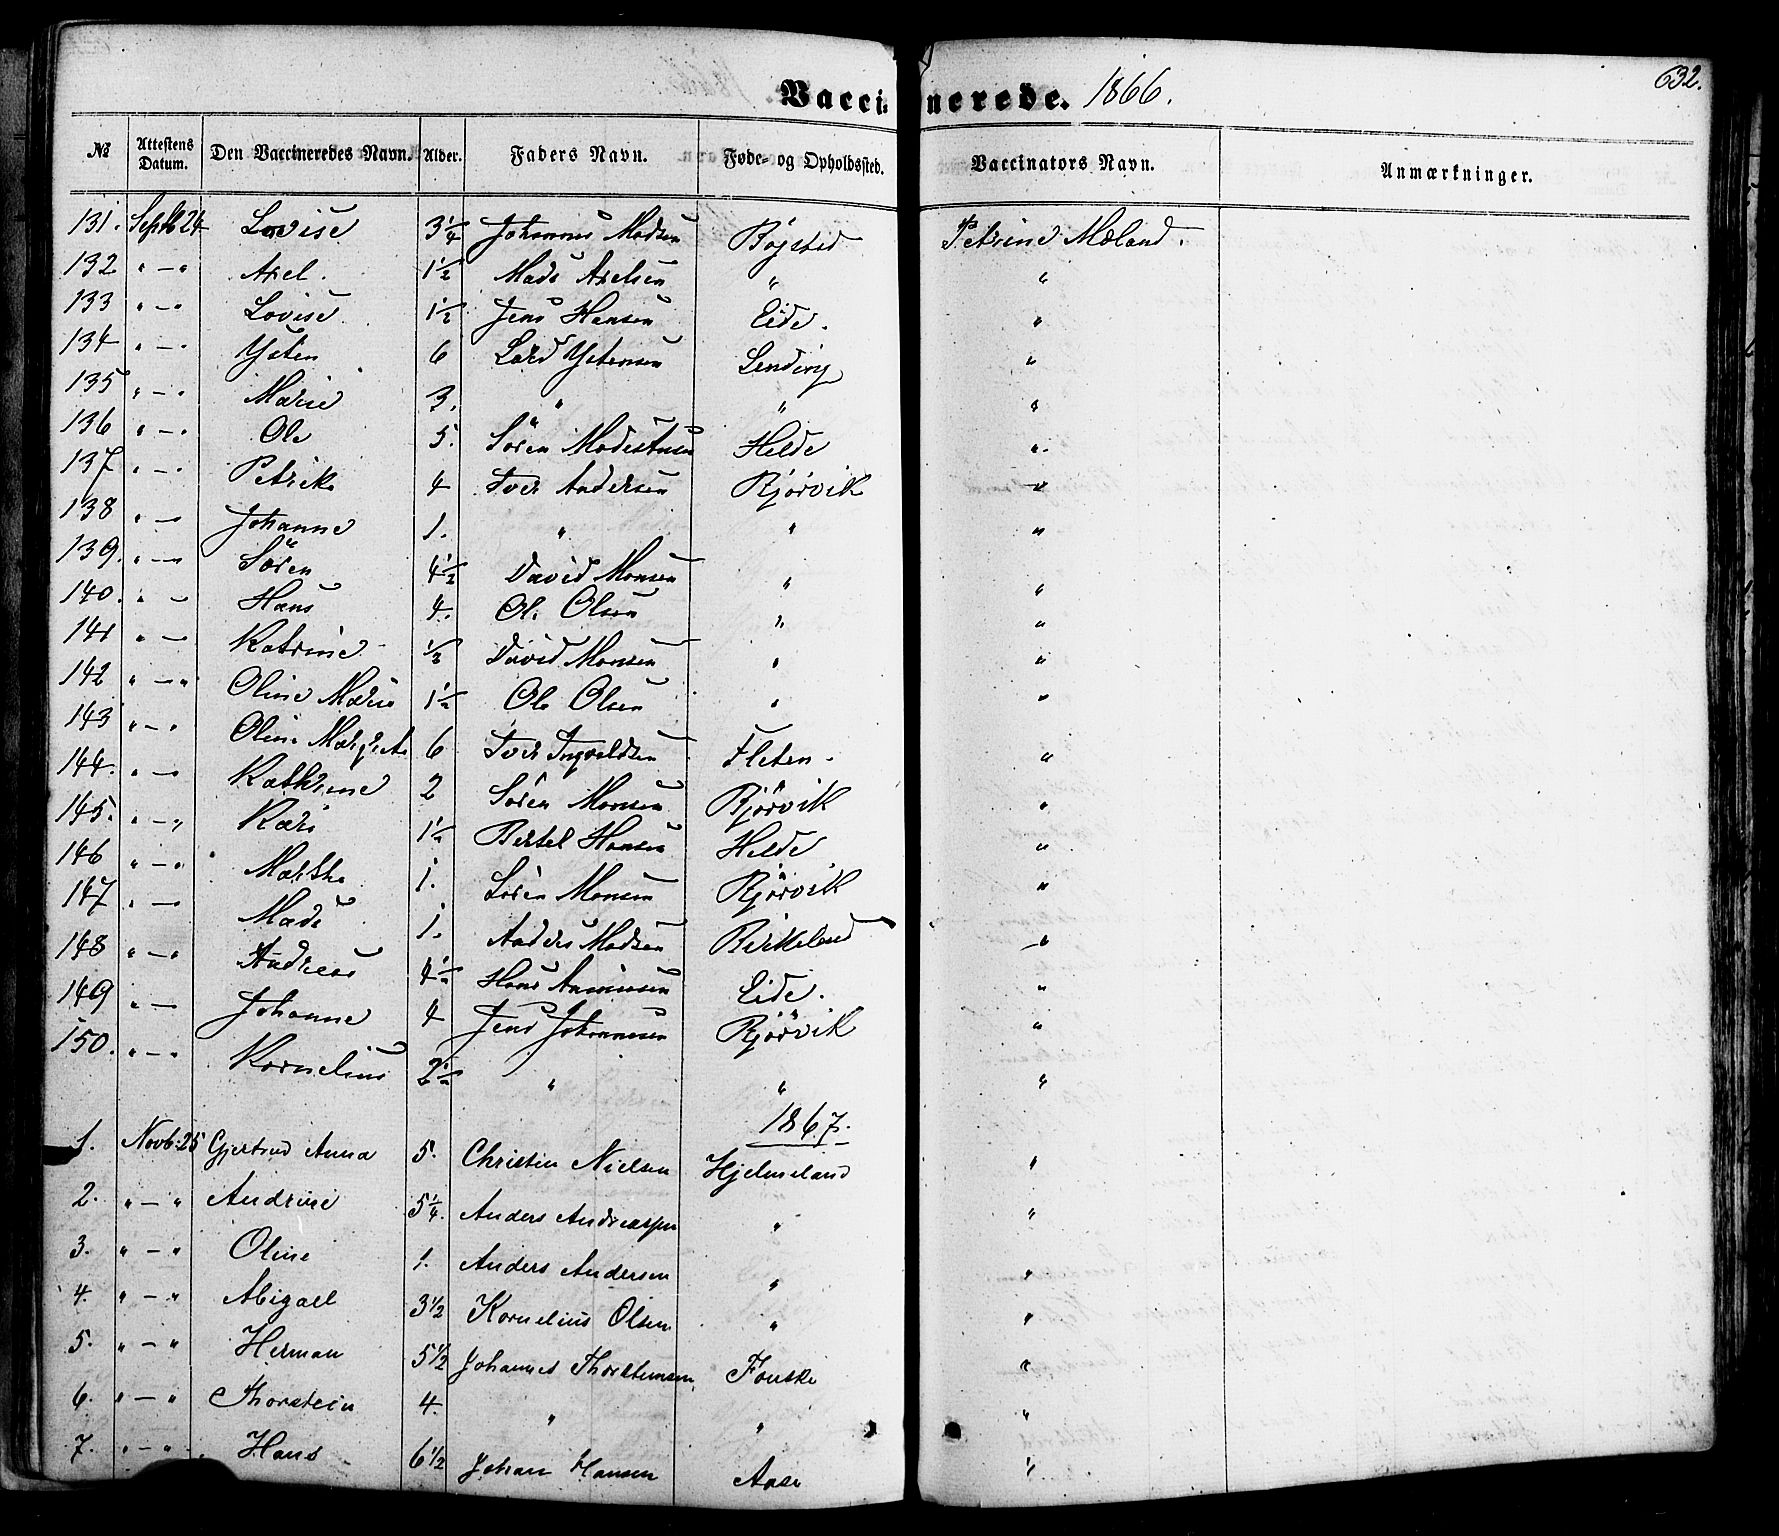 632.
Vaccinerede. 1866.
№ Attestens Datum. Den Vaccineredes Navn. Alder. Faders Navn. Føde- og Opholdssted. Vaccinators Navn. Anmærkninger.
131. Septb 24 Lovise 3 1/4 Johannes Madsen Bøjstad Petrine Mæland.
132 " — " Axel. 1 1/2 Mads Axelsen " "
133 " — " Lovise 1 1/2 Jens Hansen Eide. "
134 " — " Ysten 6 Lars Ystensen Lending "
135 " — " Marie 3. " " "
136 " — " Ole 5. Sören Modestusen Helde "
137 " — " Petrike 4 Iver Andersen Bjørvik "
138 " — " Johanne 1. " " "
139. " — " Sören 4 1/2 David Monsen " "
140. " — " Hans 4. Ole Olsen " "
141 " — " Katrine 1/2 David Monsen " "
142 " — " Oline Marie 1 1/2 Ole Olsen "
143 " — " Oline Margrete 6 Iver Ingvaldsen Fleten. "
144. " — " Kathrine 2 Sören Monsen Bjørvik "
145. " — " Kari 1 1/2 Bertel Hansen Helde "
146 " — " Marthe 1. Sören Monsen Bjørvik "
147 " — " Mads 1. Anders Madsen Birkeland "
148 " — " Andreas 4 1/2 Hans Asmusen Eide. "
149 " — " Johanne 4 Jens Johannesen Bjørvik "
150. " — " Kornelius 2 1/2 " " "
1867.
1. Novb: 25 Gjertrud Anna 5. Christen Nielsen Hjelmeland "
2. " — " Andrine 5 1/4. Anders Andreassen " "
3. " — " Oline 1. Anders Andersen " "
4. " — " Abigael 3 1/2 Kornelius Olsen " "
5. " — " Herman 5 1/2 Johannes Thorstensen Fouske "
6. " — " Thorstein 4. " " "
7. " — " Hans 6 1/2 Johan Hansen Aase "